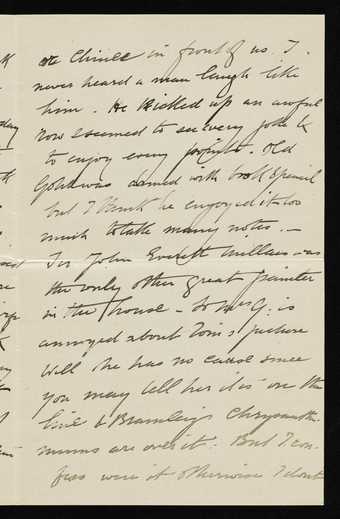 Chinee in front of us. I
never heard a man laugh like
him. He kicked up an awful
row & seemed to see every joke &
to enjoy every point. Old
was armed with book & pencil
but I think he enjoyed it too
much to take many notes. —
Sir John Everett Millais was
the only other great painter
in the house — So Mrs G. is
annoyed about Tom's picture
Well she has no cause since
you may tell her it is on the
line & Bramley's Chrysanthe-
mums are over it. But I con-
fess were it otherwise I don't